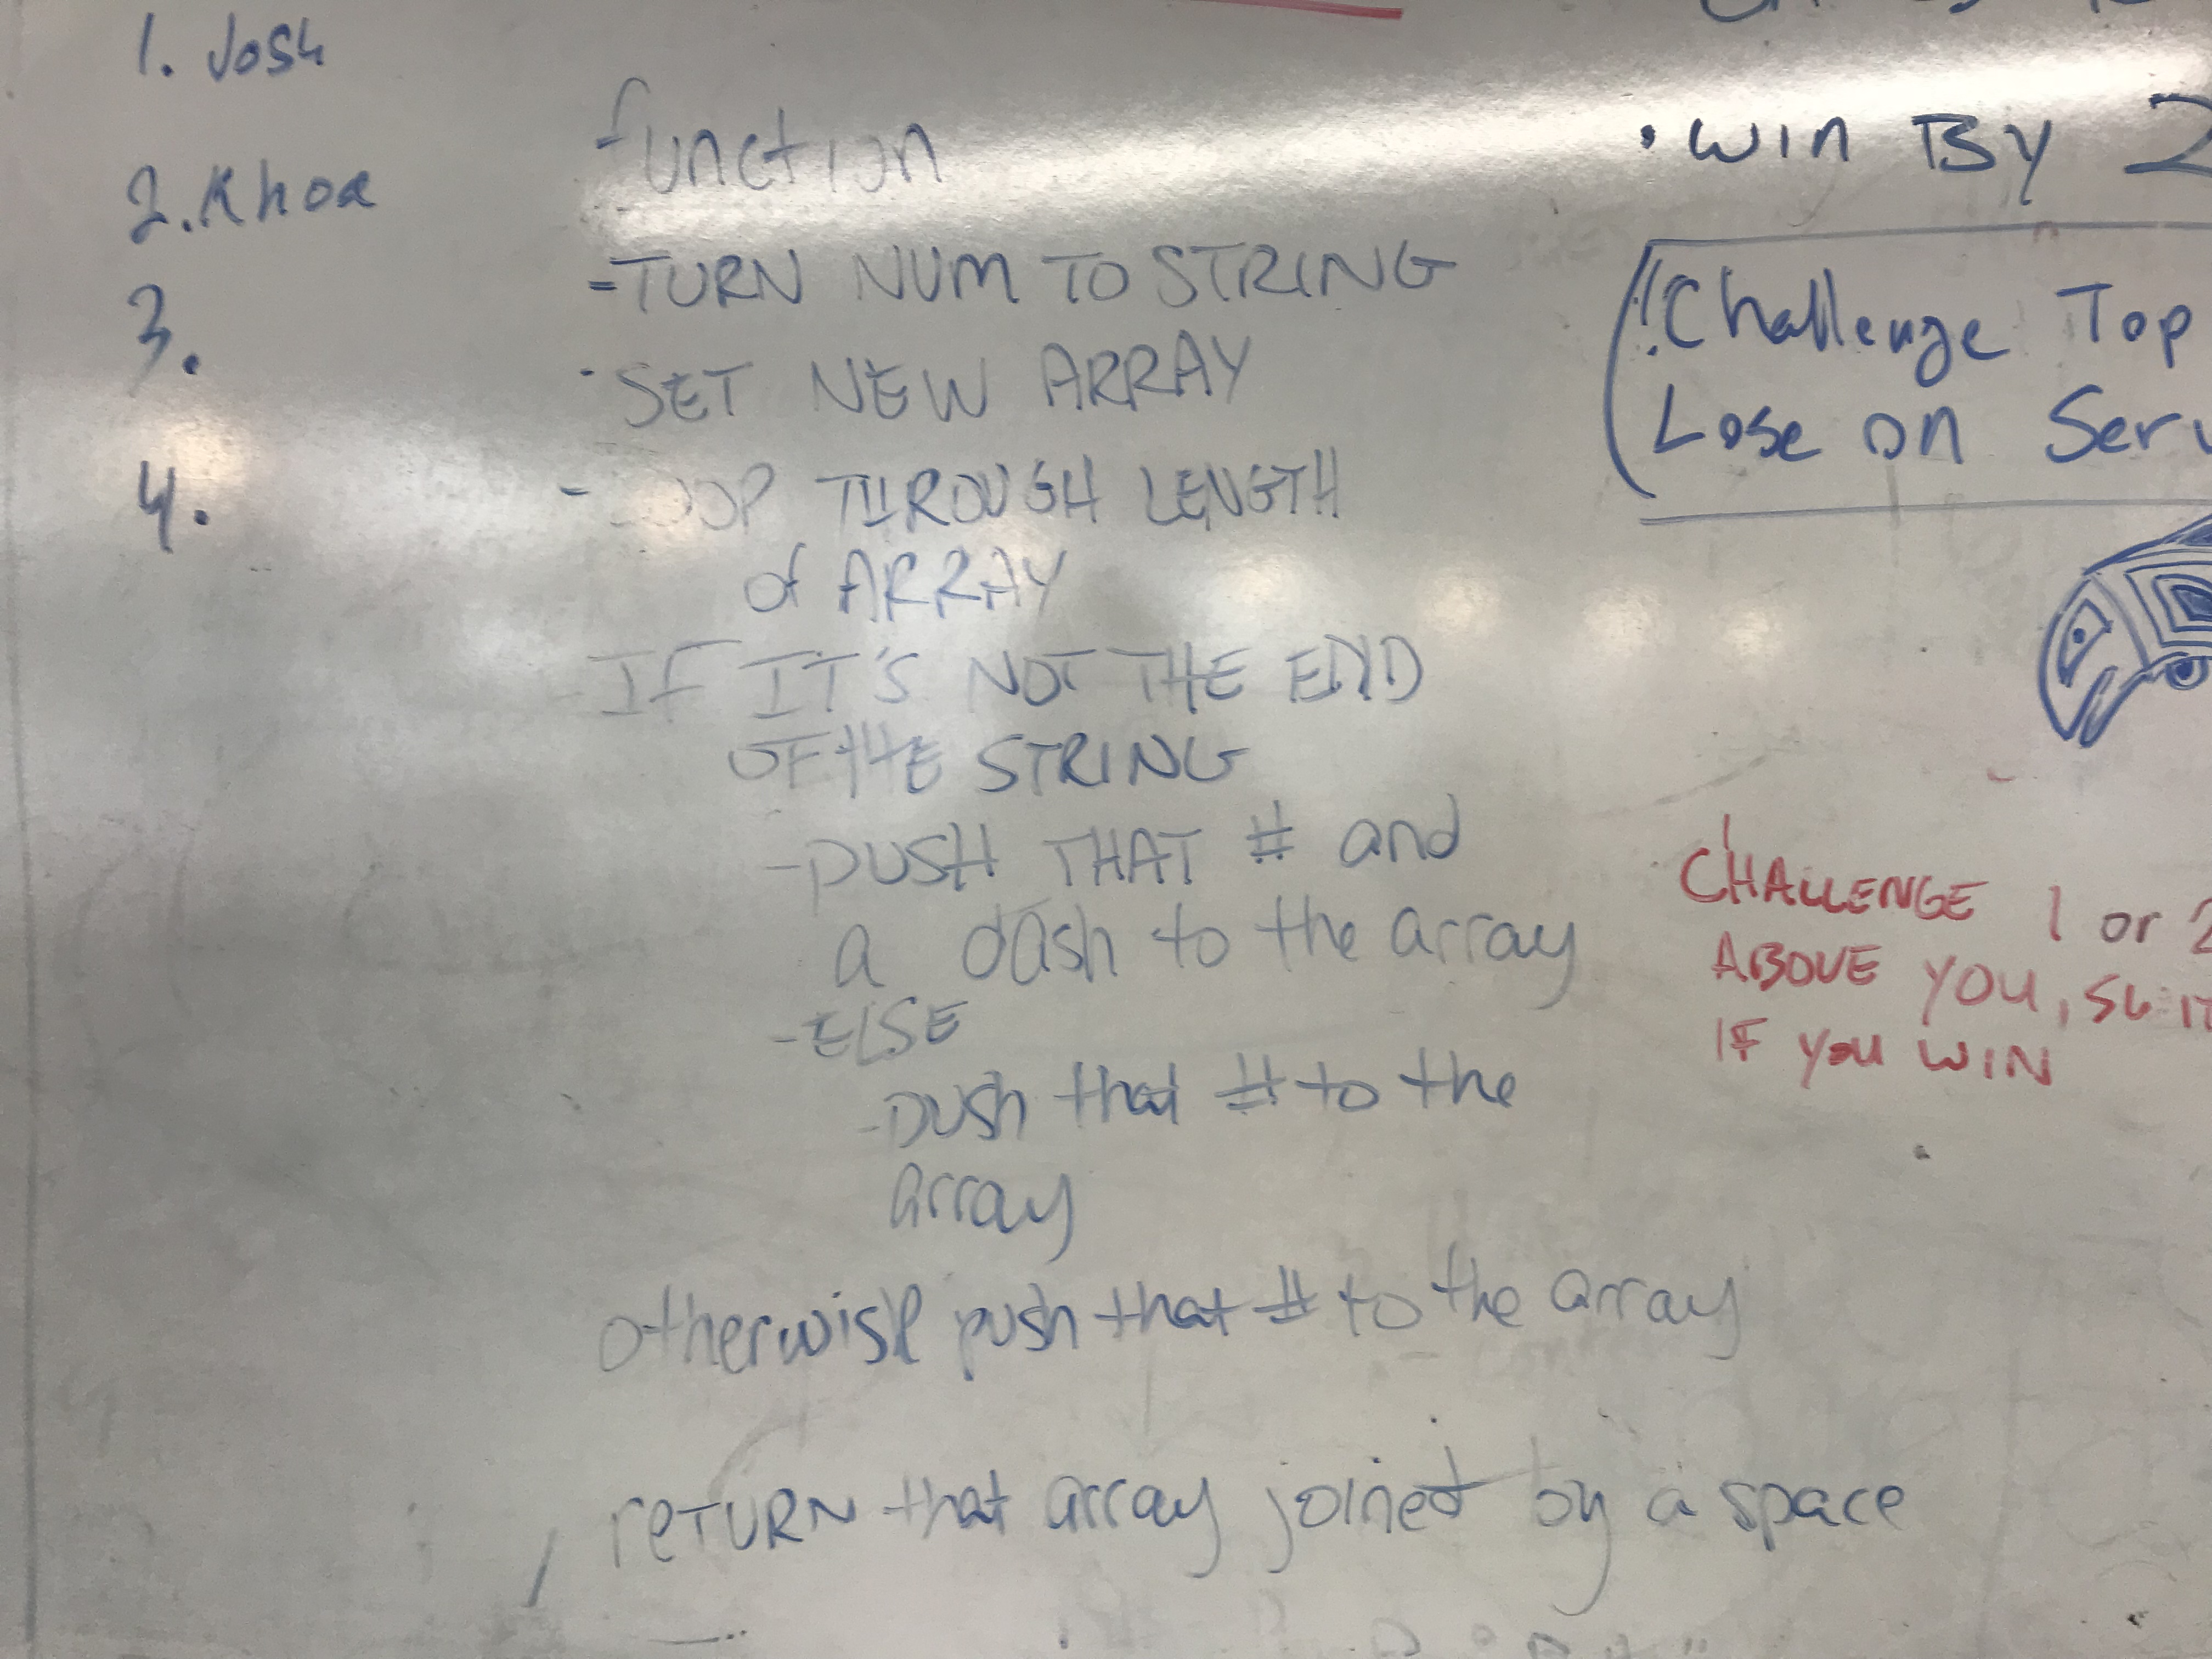 1. Josh
2. Khoa
3.
4.
function
-TURN NUM TO STRING
·SET NEW ARRAY
-LOOP THROUGH LENGTH
of ARRAY
-IF IT'S NOT THE END
OF THE STRING
-PUSH THAT # and
a dash to the array
-ELSE
-push that # to the
array
otherwise push that # to the array
reTURN that array joined by a space
• WIN By 2
Challenge Top
Lose on Serv
CHALLENGE 1 or 2
ABOVE YOU,
IF you WIN